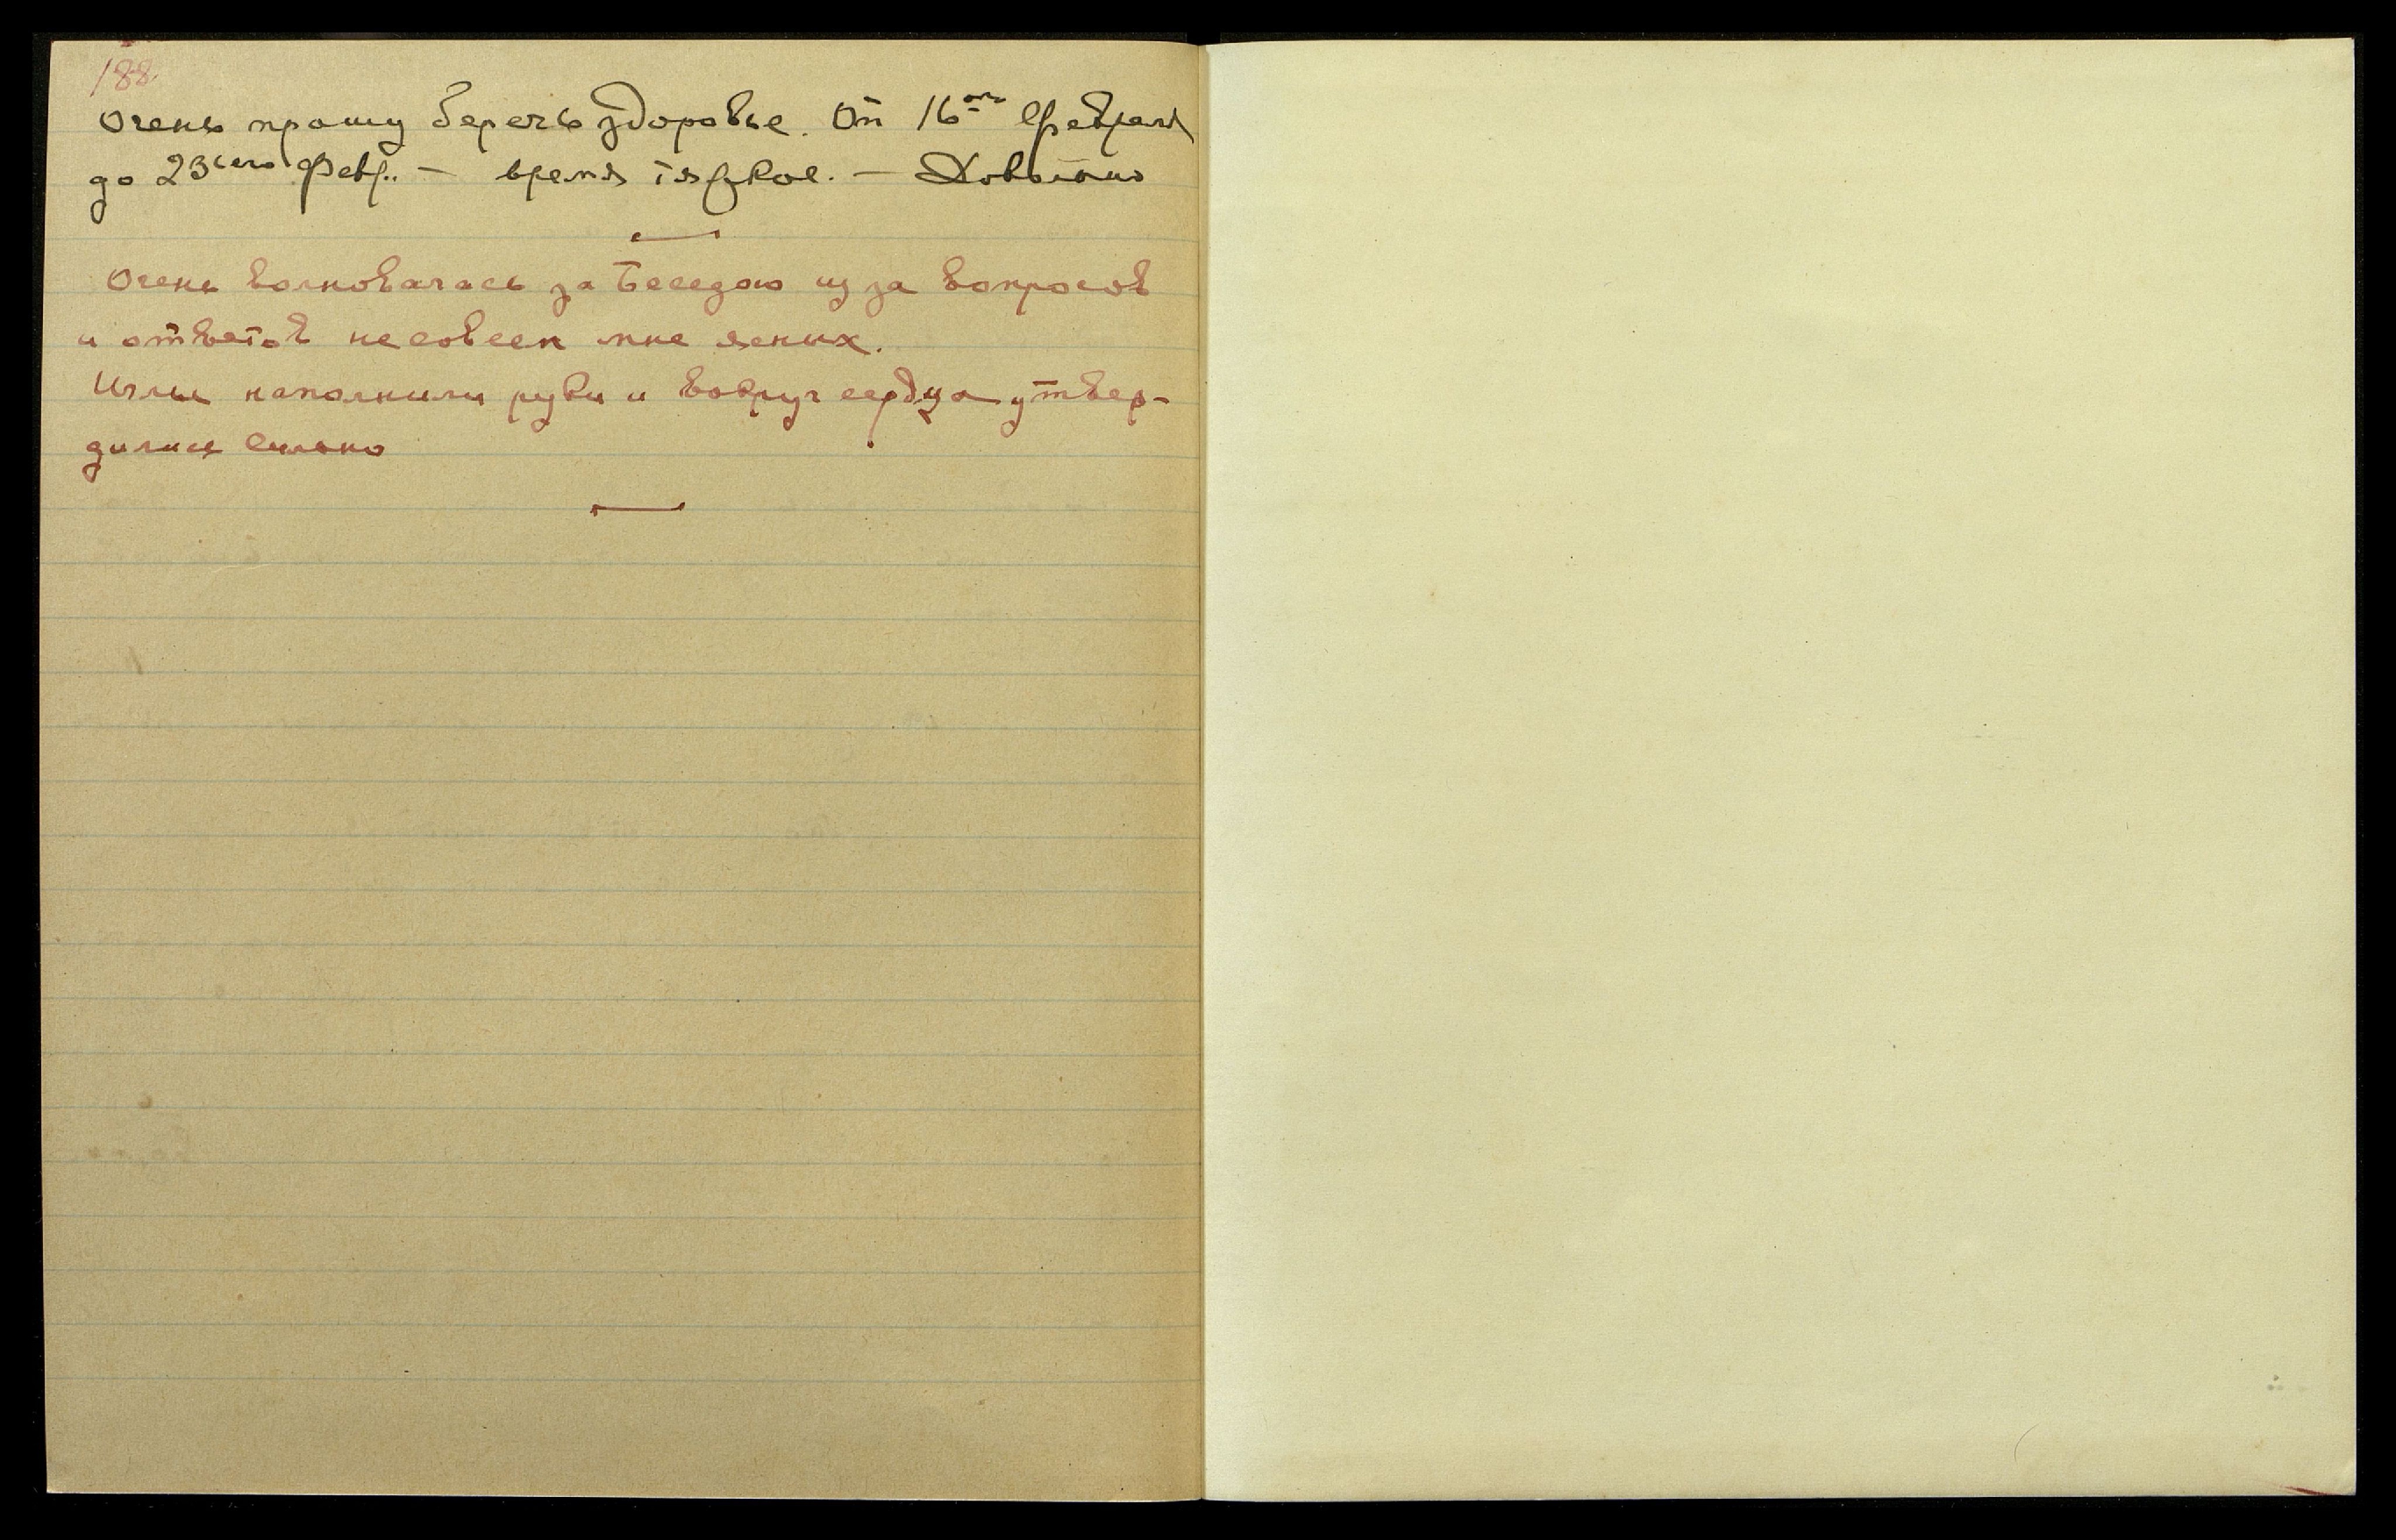 188.
Очень прошу беречь здоровье. От 16ого Февраля
до 23ьего Февр. — время тяжкое. — Довольно
Очень волновалась за Беседою из за вопросов
и ответов несовсем мне ясных.
Иглы наполнили руки и вокруг сердца утвер-
дились сильно